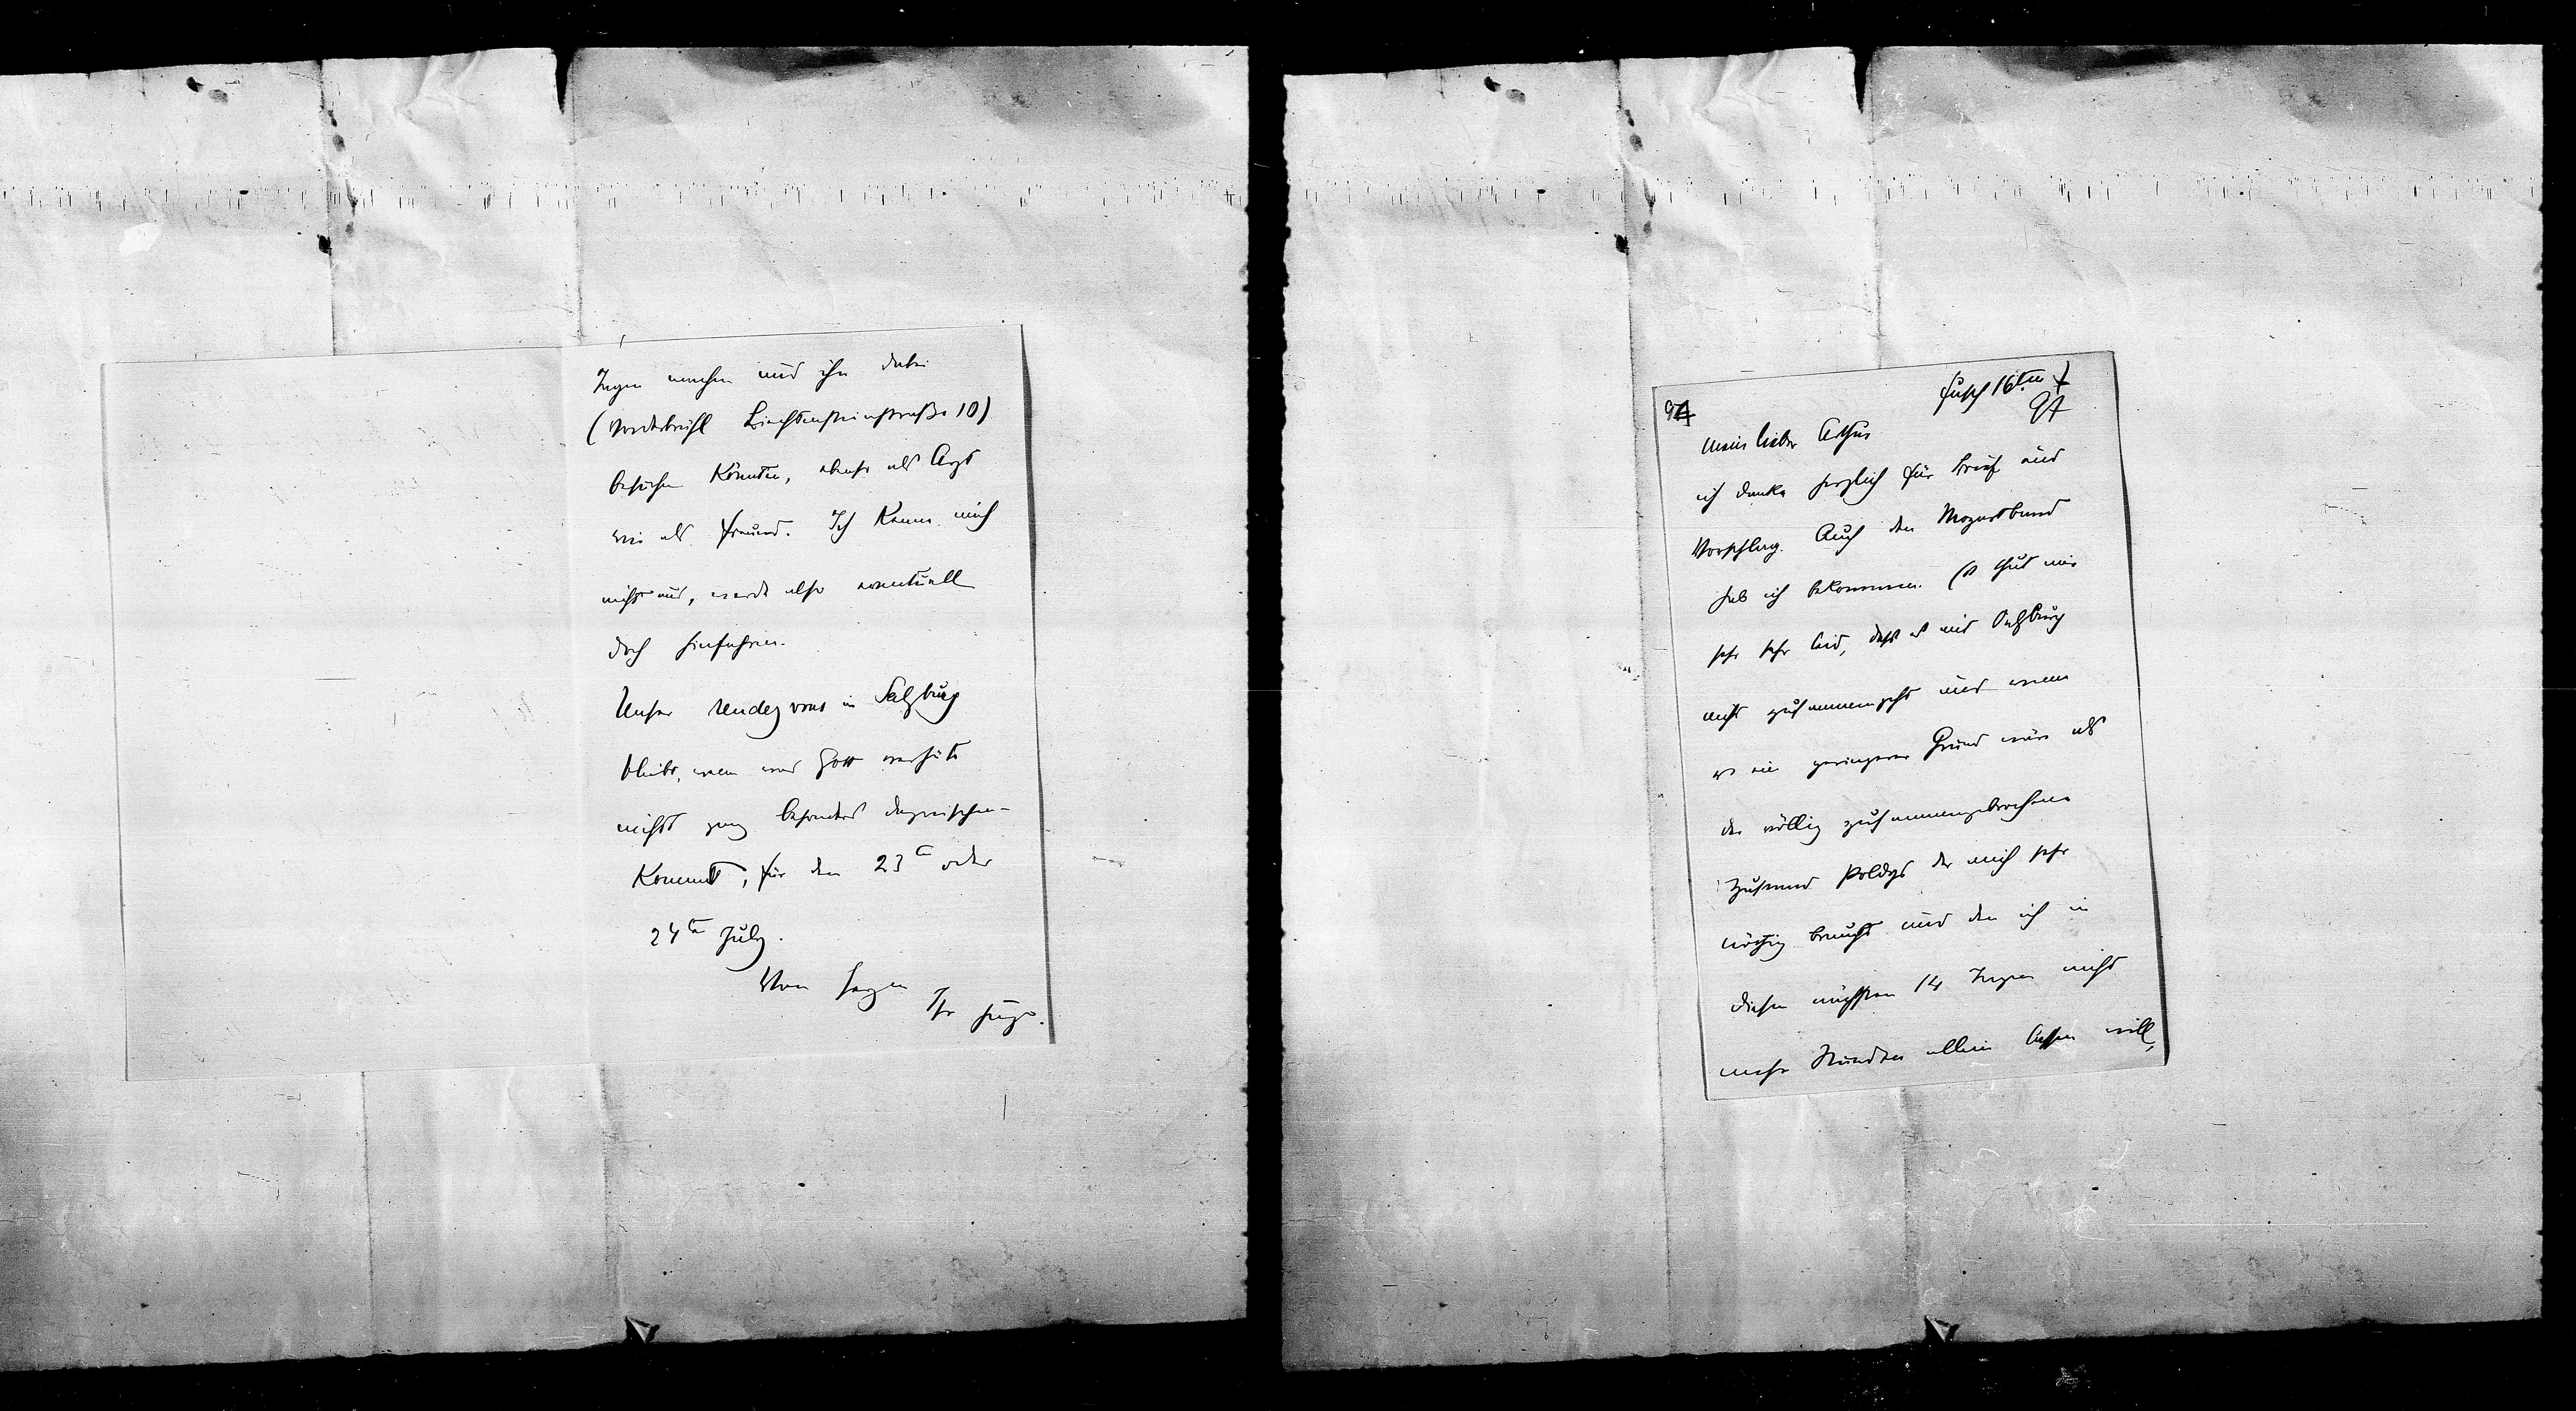 Tagen machen und ihn dabei
(Vorderbrühl Liechtensteinstraße 10)
besuchen könnten, ebenso als Arzt
wie als Freund. Ich kenne mich
nicht aus, werde also eventuell
doch hinfahren.
Unser Rendezvous in Salzburg
bleibt, wenn was Gott verhüte
nichts ganz besonders dazwischen-
kommt, für den 23ten oder
24ten July.
Von Herzen
Ihr Hugo.
Fusch 16ten 7
97
mein lieber Arthur
ich danke herzlich für Brief und
Vorschlag. Auch den Mozartbund
hab ich bekommen. Es thut mir
sehr sehr leid, dass es mit Salzburg
nicht zusammengeht und wenn
es ein geringerer Grund wäre als
der völlig zusammengebrochene
Zustand Poldys der mich sehr
nöthig braucht und den ich in
diesen nächsten 14 Tagen nicht
mehr Stunden allein lassen will,